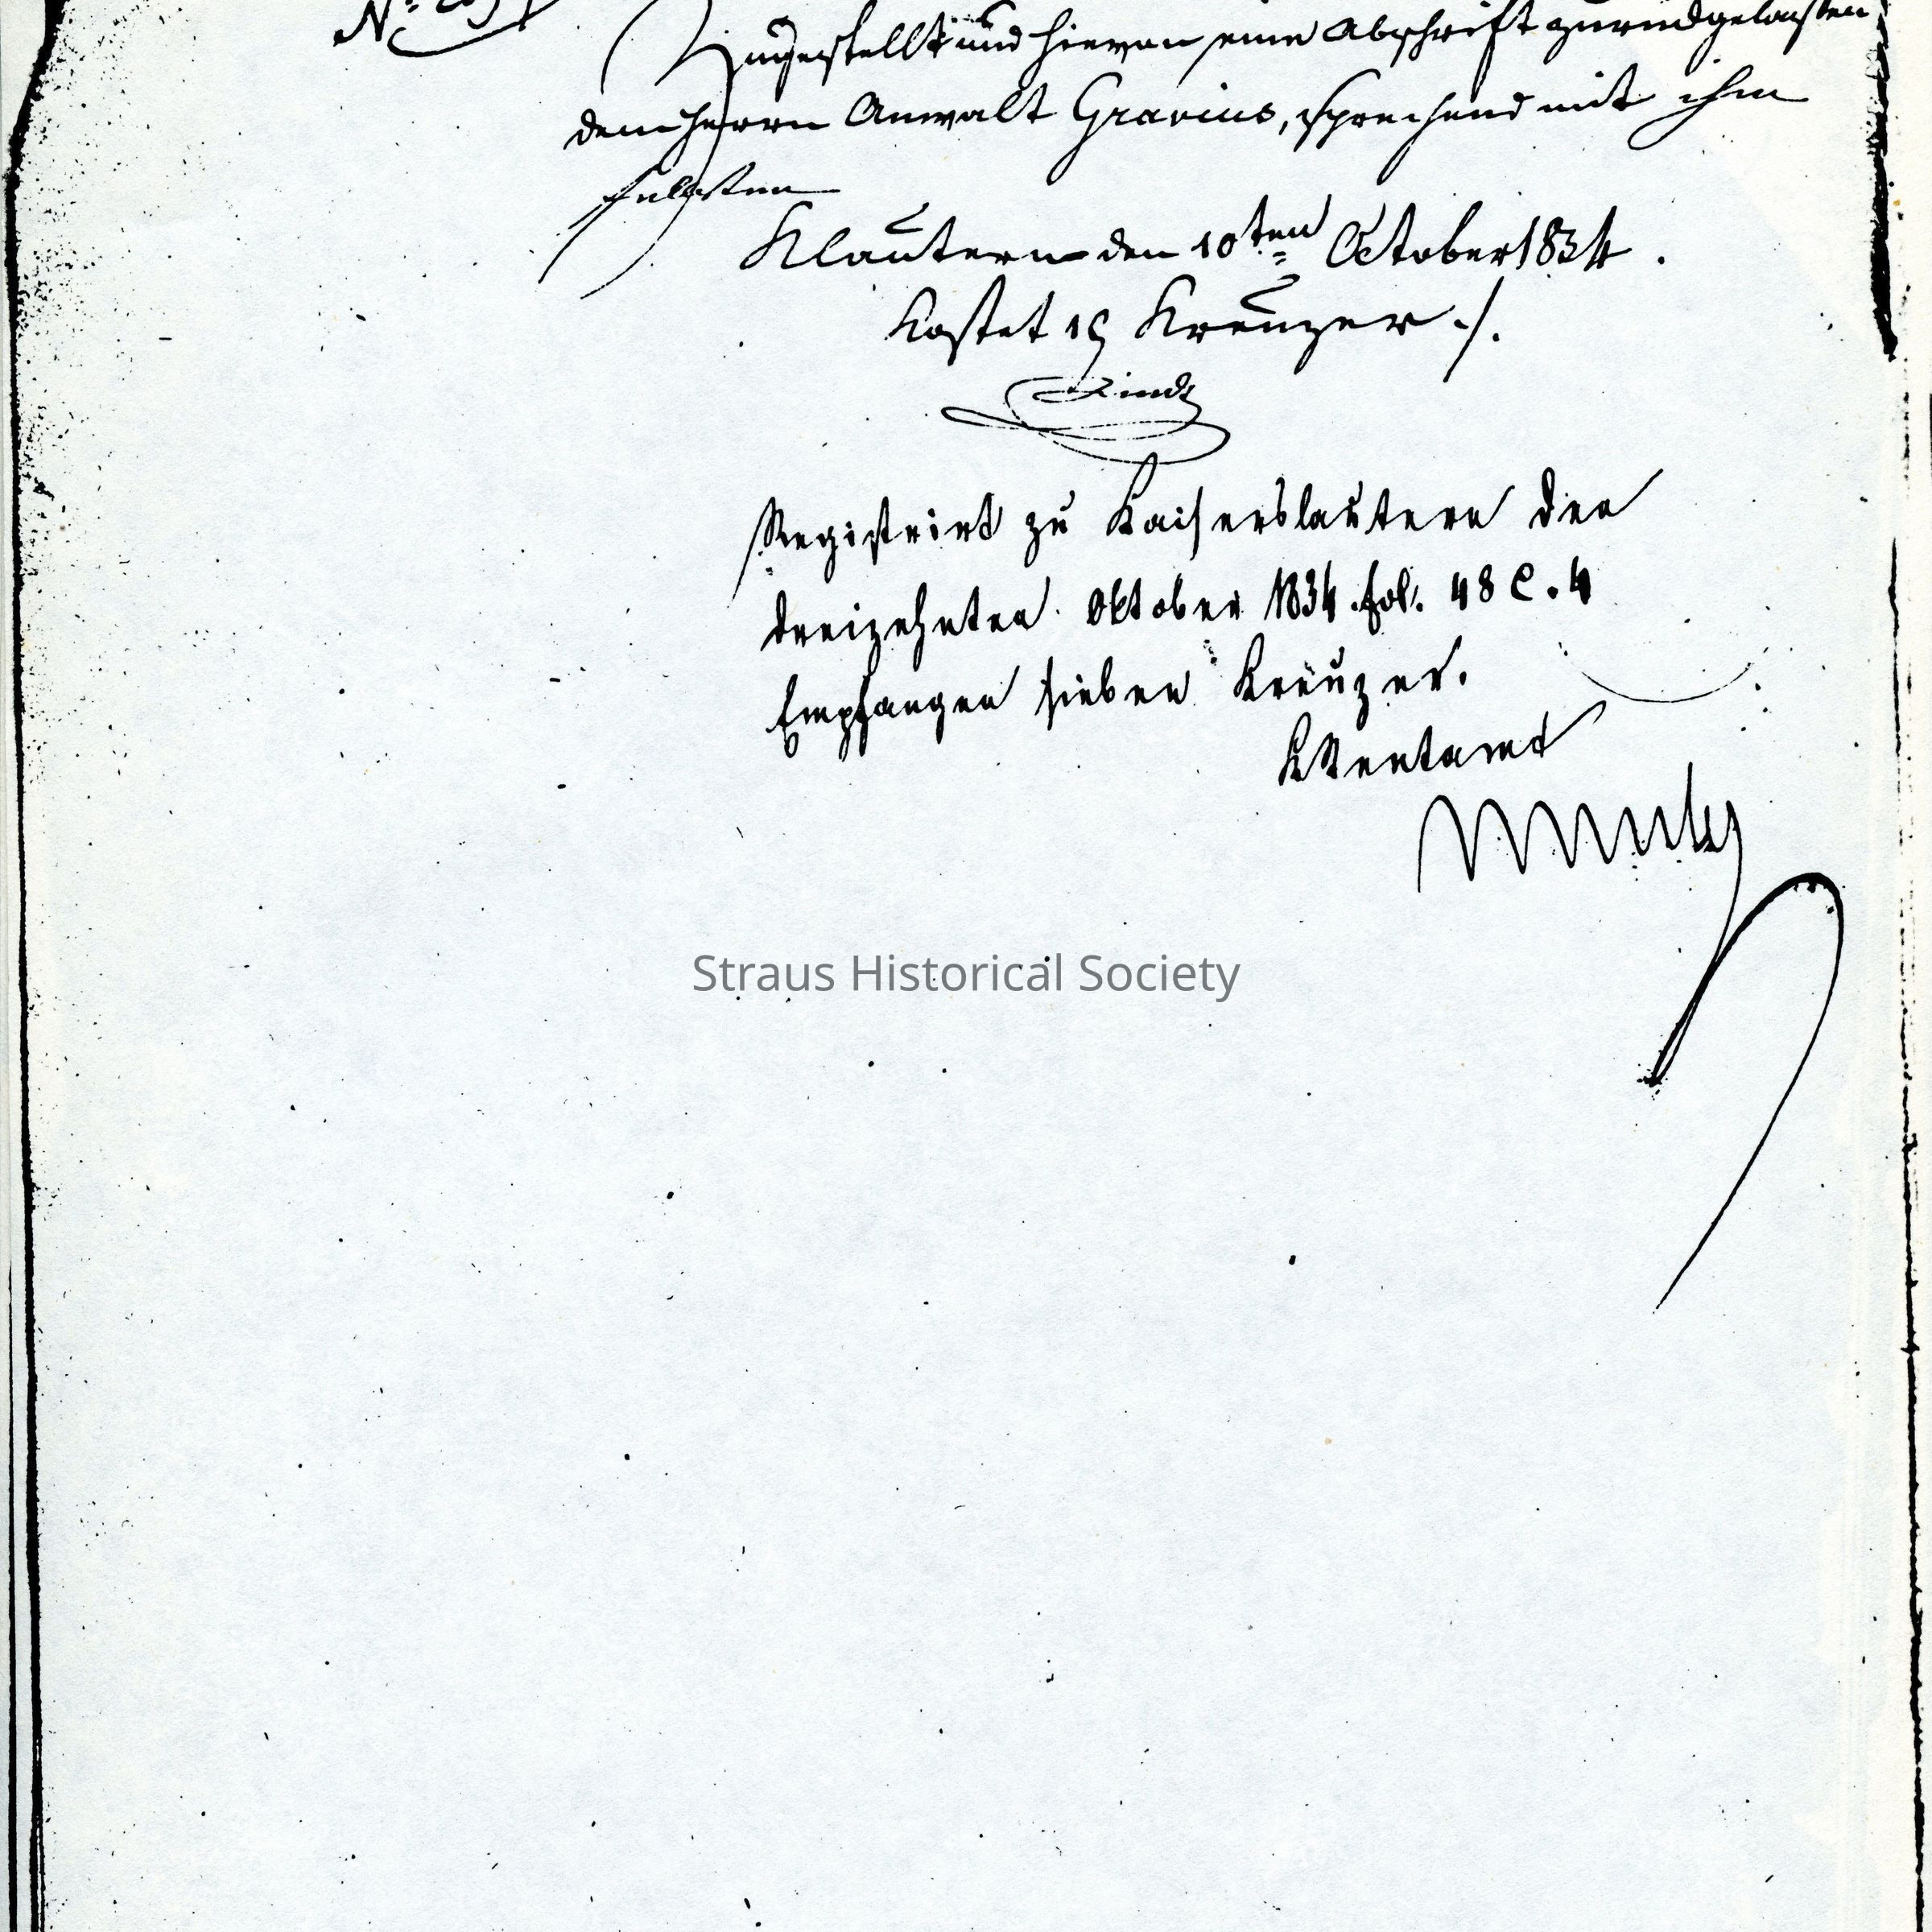 Zugestellt und hievon eine Abschrift zurückgelassen
dem Herrn Anwalt Gravius, sprechend mit ihm
selbsten
Klautern den 10ten October 1834.
Kostet 15 Kreuzer ./.
Registrirt zu Kaiserslautern den
dreizehnten Oktober 1834 fol. 48 C. 4
Empfangen sieben Kreuzer.
K Rentamt
Straus Historical Society